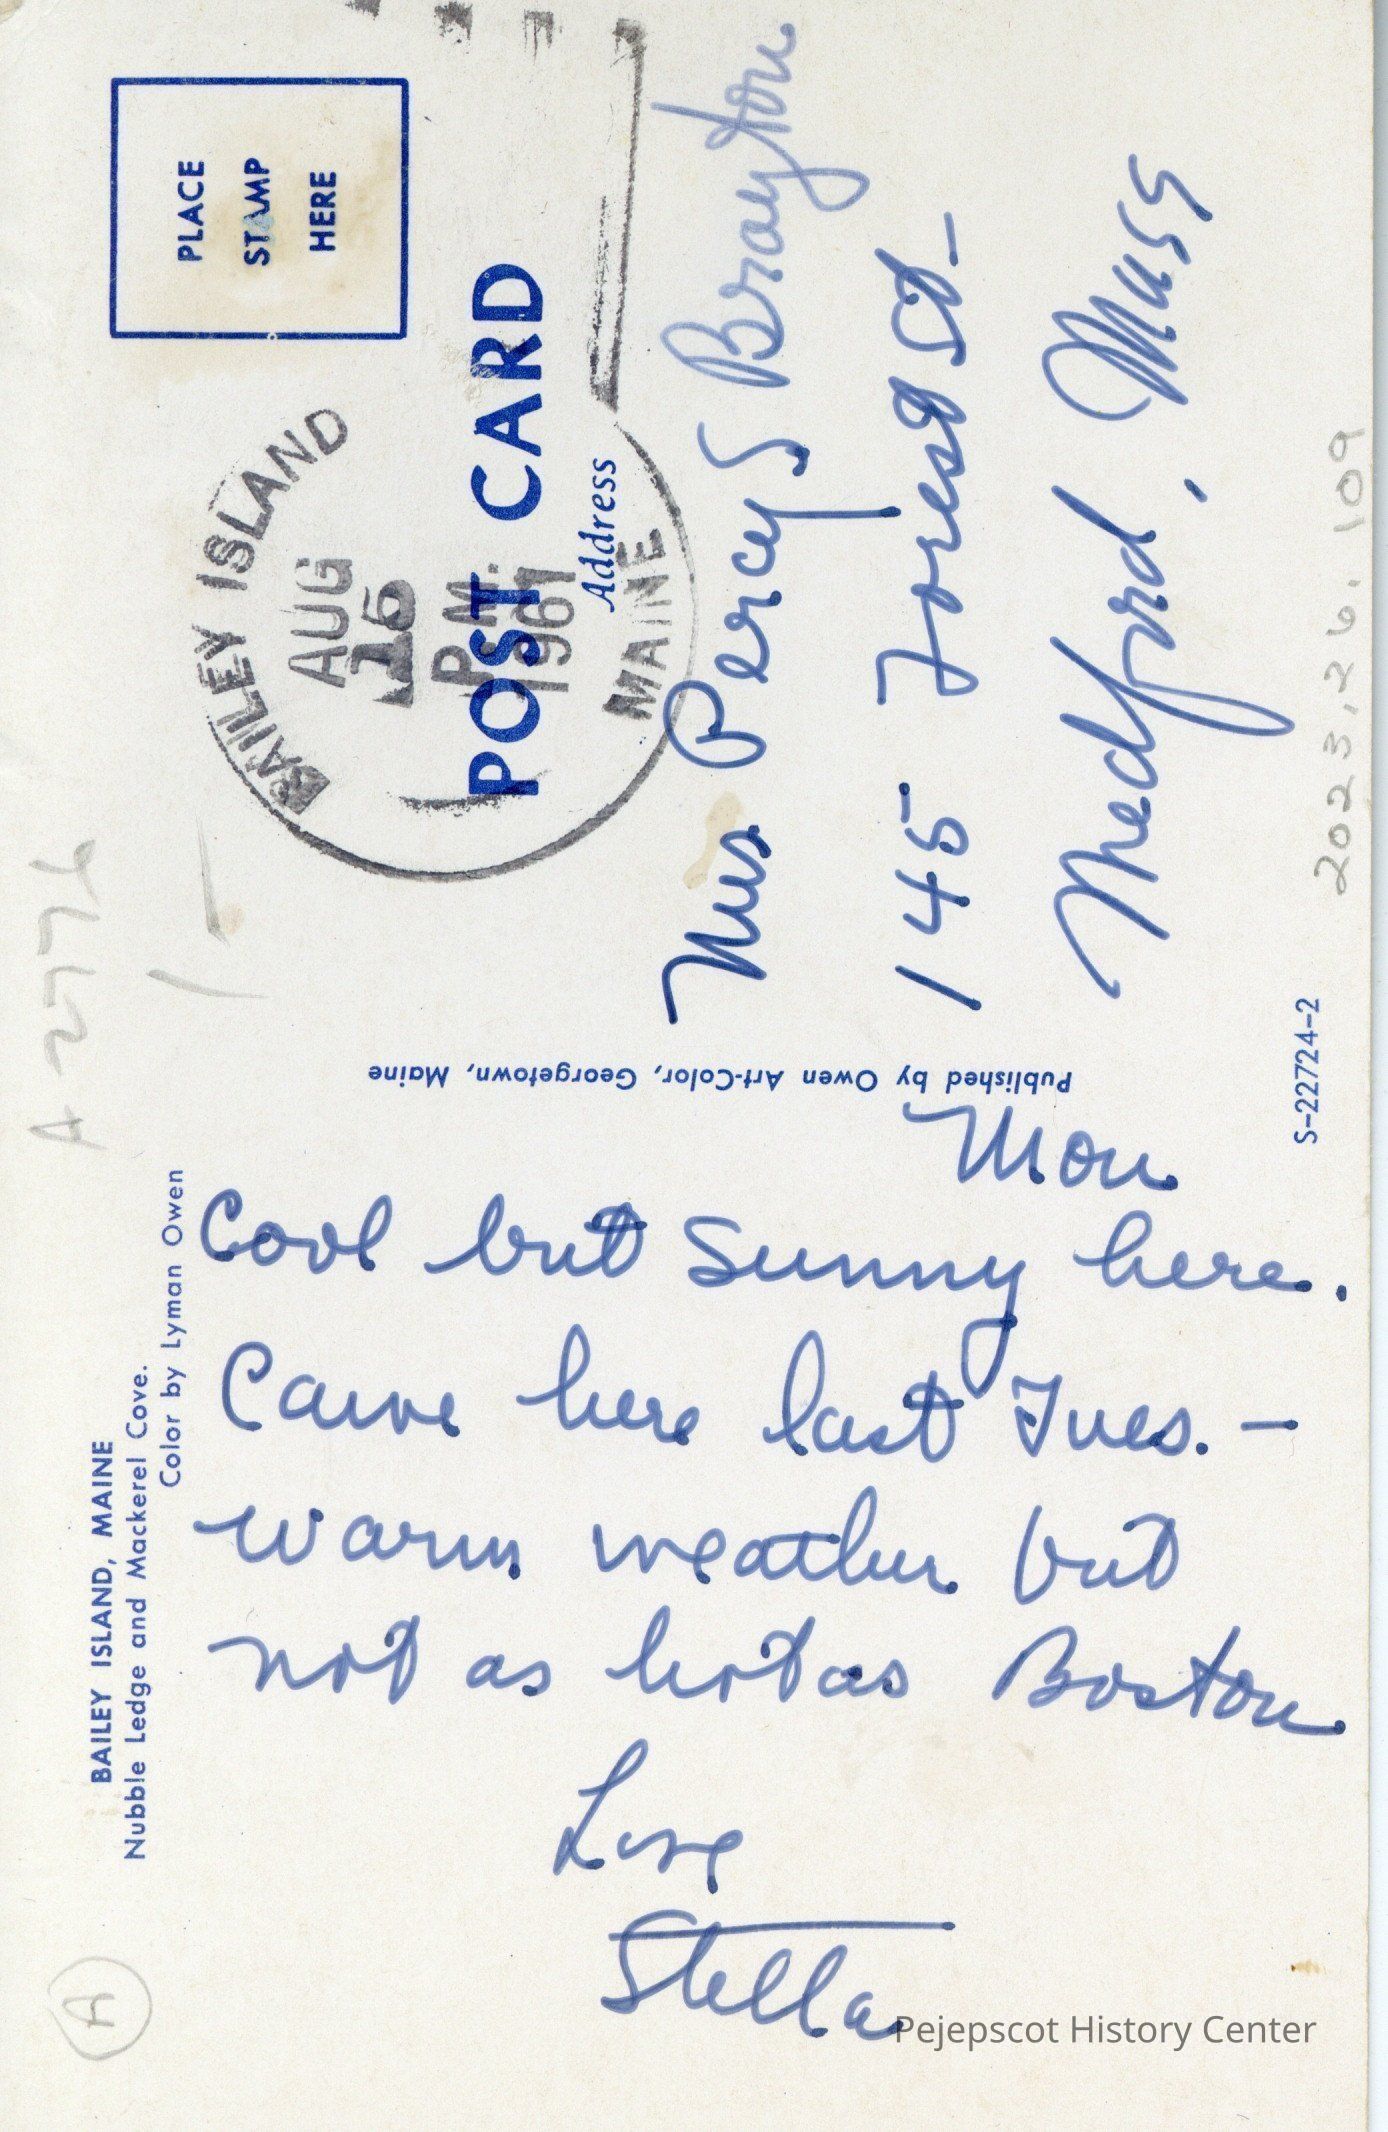 BAILEY ISLAND, MAINE
Nubble Ledge and Mackerel Cove.
Color by Lyman Owen
A
A 2776
Mon
Cool but Sunny here.
Came here last Tues. —
warm weather but
not as hot as Boston
Love
Stella
Published by Owen Art-Color, Georgetown, Maine
S-22724-2
PLACE
STAMP
HERE
BAILEY ISLAND
AUG
15
P.M.
1961
MAINE
POST CARD
Address
Mrs Percy S Brayton
145 Forest St-
Medford, Mass
2023.26.109
Pejepscot History Center